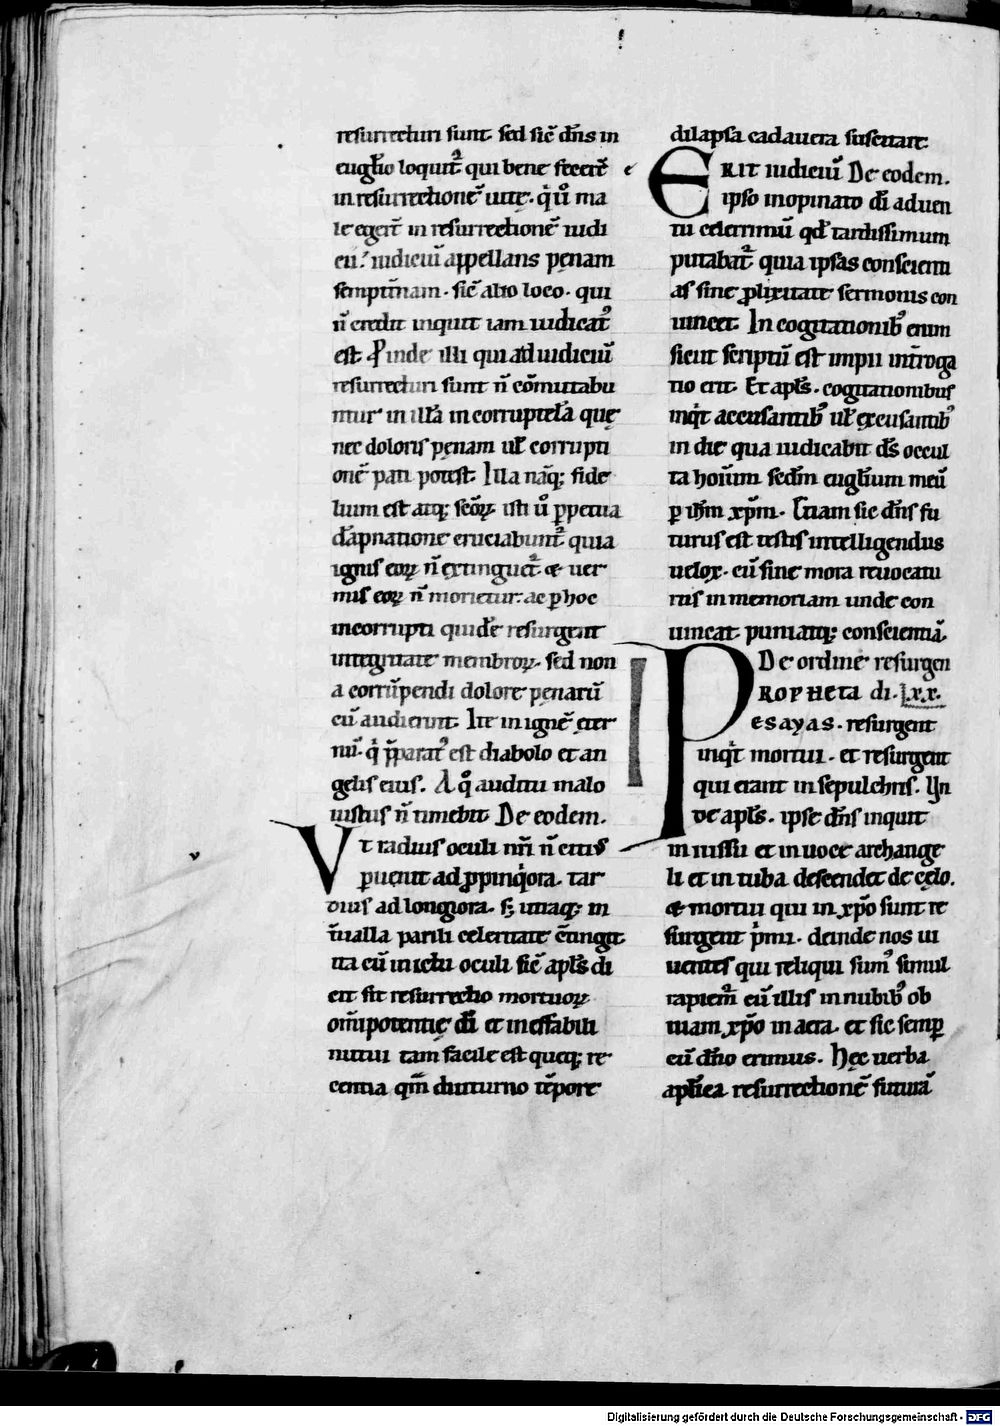 resurrecturi sunt. sed sic̄ dn̄s in
eug̅lio loquit᷑ qui bene fecer̄
in resurrectionē uitę. q̇ ů ma
le eger̄t in resurrectionē iudi
cii.᾽ iudiciū appellans pęnam
sempit̄nam. sic̄ alio loco. qui
n̄ credit inquit iam iudicat᷒
est. P̱inde illi qui ad iudiciū
resurrecturi sunt n̄ cōmutabu
ntur in illā incorruptelā quę
nec doloris pęnam ul̄ corrupti
onē pati potest. Illa nāq; fide
lium est atq; sc̄oꝝ. isti ů ꝑpetua
dāpnatione cruciabunt᷑ quia
ignis eoꝝ n̄ extinguet᷑ & uer
mis eoꝝ n̄ morietur. ac ꝑ hoc
incorrupti quidē resurgent
integritate membroꝝ. sed non
a corrūpendi dolore pęnarū
cū audierint. Ite in ignē eter
nū. q̇ p̄parat᷒ est diabolo et an
gelis eius. A q̊ auditu malo
iustus n̄ timebit. De eodem.
Vt radius oculi nr̄i n̄ citius
ꝑuenit ad ꝓpinq̇ora. tar
dius ad longiora. s; utraq; in
t̄ualla parili celeritate ctīngit.
ita cū in ictu oculi sic̄ apl̄s di
cit fit resurrectio mortuoꝝ.
om̄ipotentię dī et ineffabili
nutui tam facile est queq; re
centia qm̄ diuturno tēpore
dilapsa cadauera suscitare.
ERIT iudiciū De eodem.
ipso inopinato dī aduen
tu celerrimū qd̄ tardissimum
putabat᷑ quia ipsas conscienti
as sine ꝓlixitate sermonis con
uincet. In cogitationib᷒ enim
sicut scriptū est impii int̄roga
tio erit. Et apl̄s. cogitationibus
inq̇t accusantib᷒ ul̄ excusantib᷒
in die qua iudicabit ds̄ occul
ta hoīum scdm̄ eug̅lium meū
ꝑ ihm̄ xp̄m. Etiam sic dn̄s fu
turus est testis intelligendus
uelox. cū sine mora reuocatu
rus in memoriam unde con
uincat. puniatq; conscientiā.
De ordine resurgen
PROPHETA di. lxx.
esayas. resurgent
inq̇t mortui. et resurgent
qui erant in sepulchris. Un
de apl̄s. ipse dn̄s inquit
in iussu et in uoce archange
li et in tuba descendet de cęlo.
& mortui qui in xp̄o sunt re
surgent p̍mi. deinde nos ui
uentes qui reliqui sum᷒ simul
rapiem᷒ cū illis in nubib᷒ ob
uiam xp̄o in aera. et sic semꝑ
cū dn̄o erimus. Hęc uerba
apl̄ica resurrectionē futurā
Digitalisierung gefördert durch die Deutsche Forschungsgemeinschaft - DFG